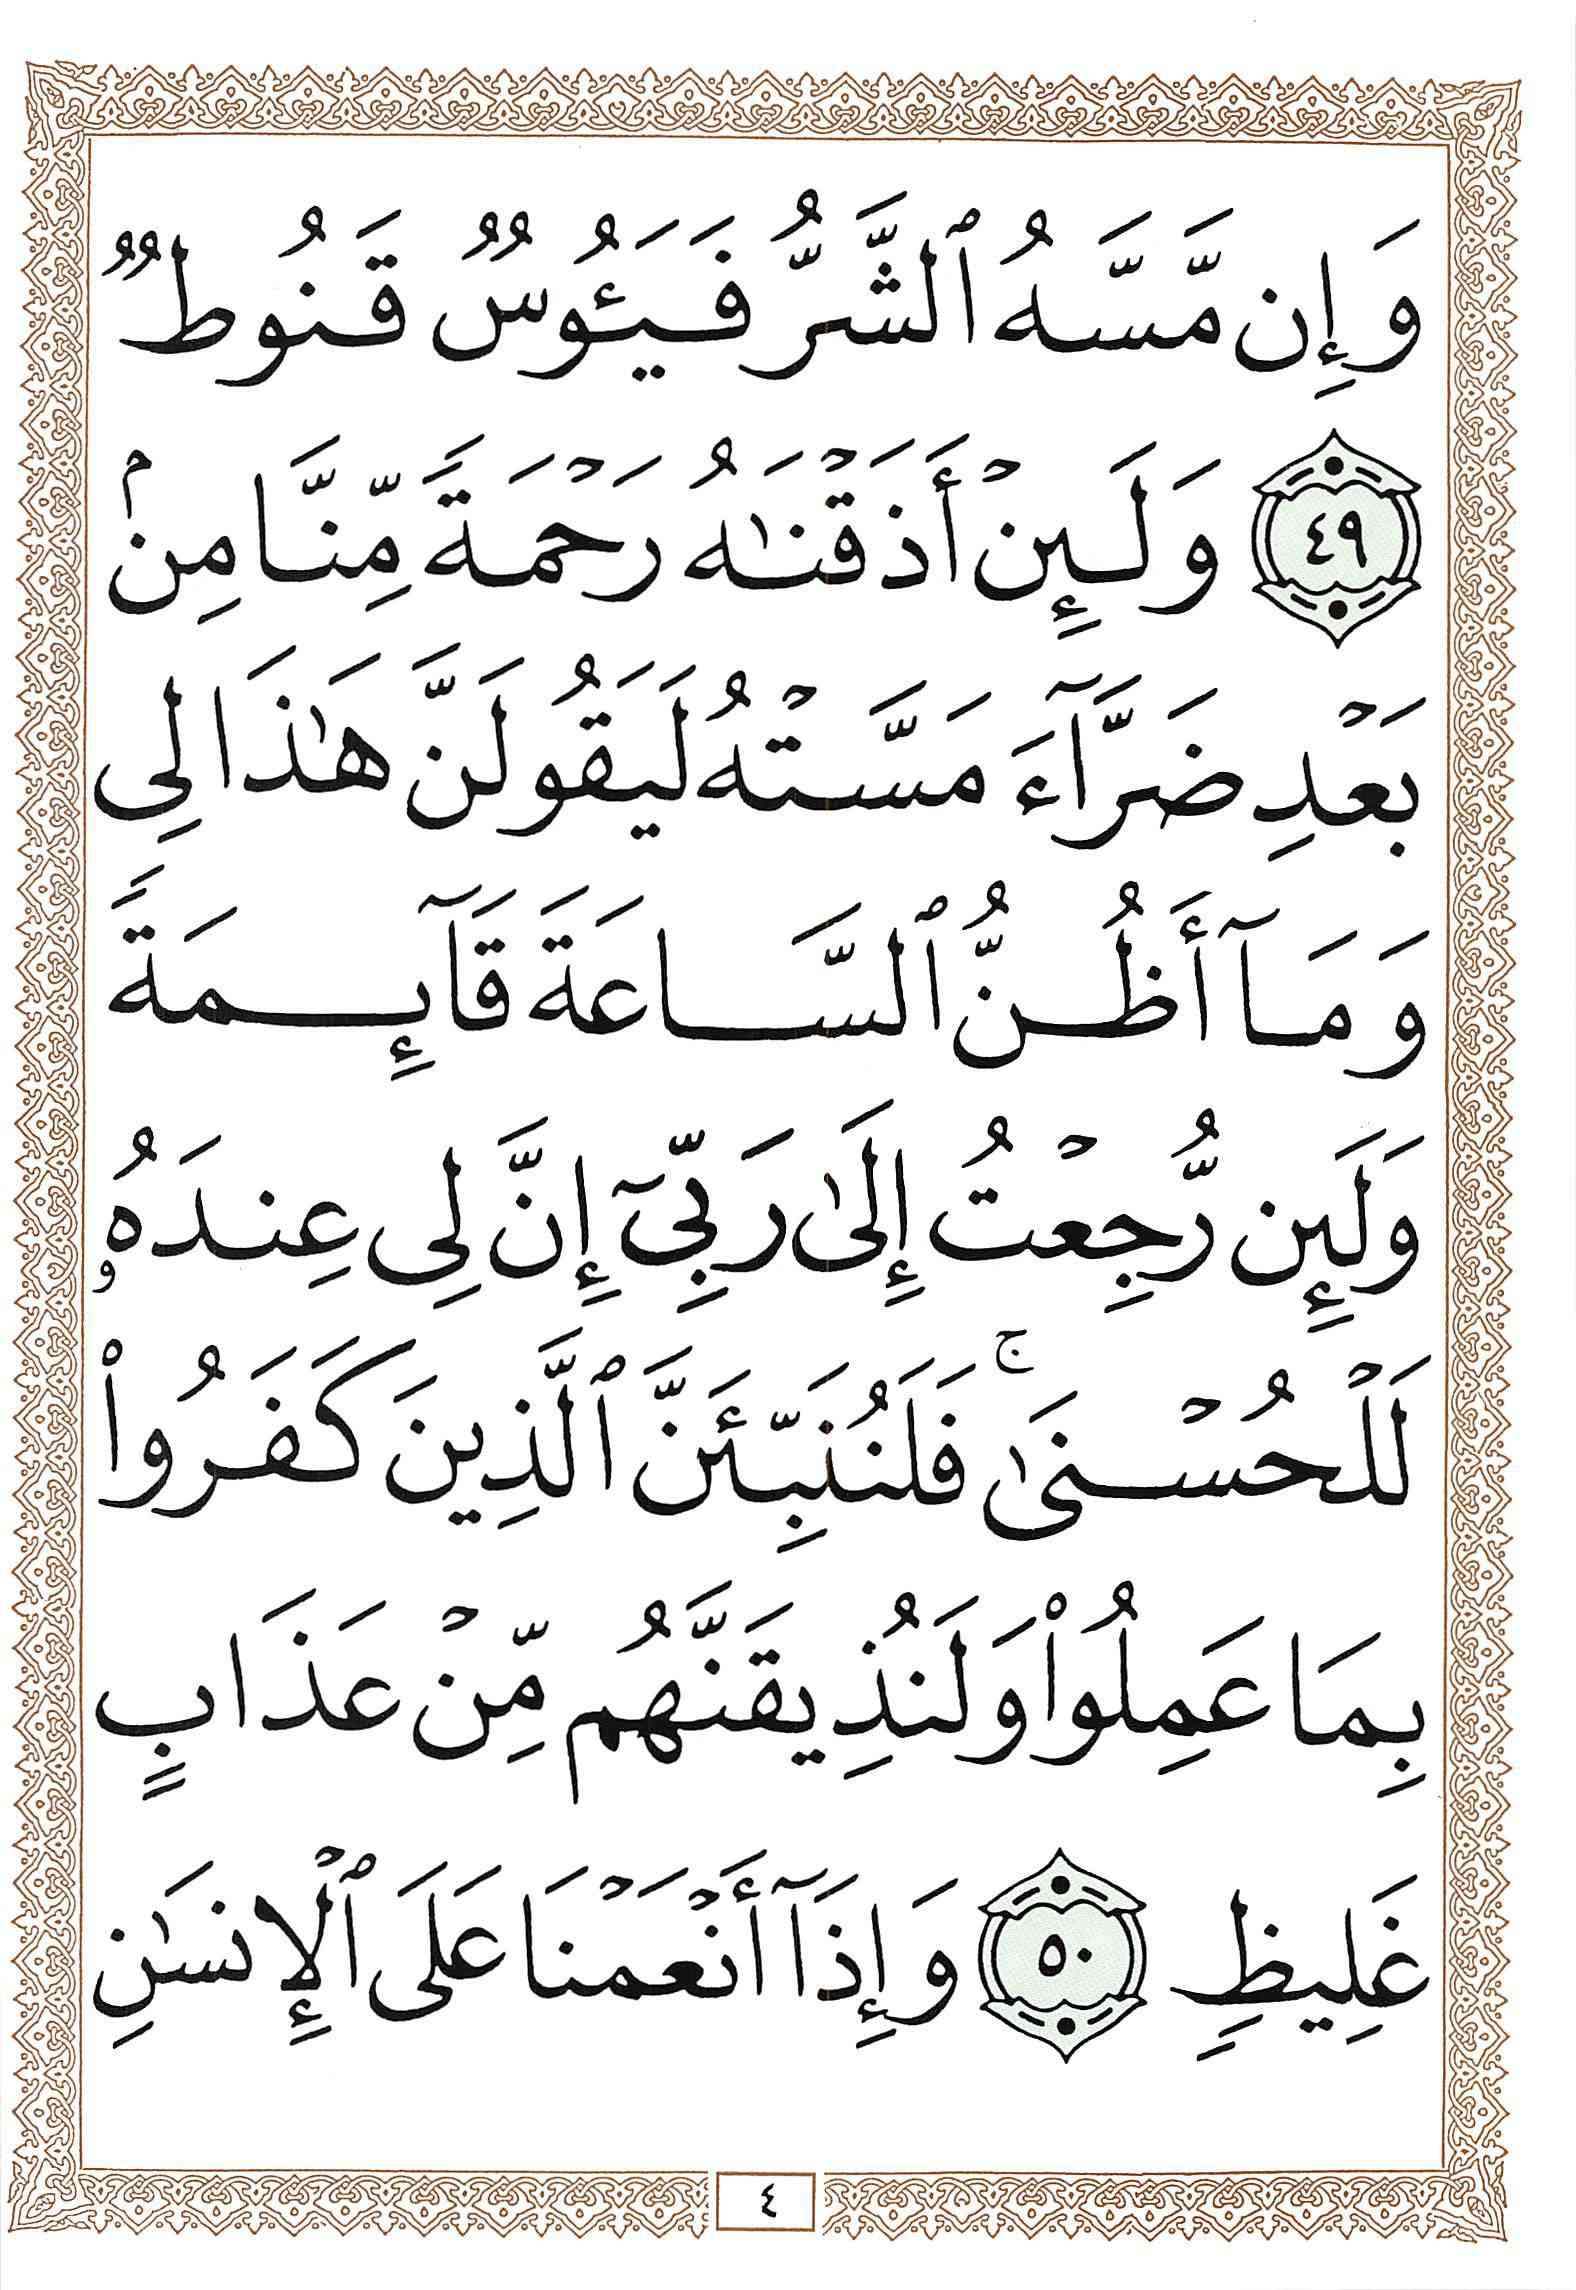 وَإِن مَّسَّهُ ٱلشَّرُّ فَيَـُٔوسٌ قَنُوطٌ
٤٩ وَلَئِنْ أَذَقْنَٰهُ رَحْمَةً مِّنَّا مِنۢ
بَعْدِ ضَرَّآءَ مَسَّتْهُ لَيَقُولَنَّ هَٰذَا لِى
وَمَآ أَظُنُّ ٱلسَّاعَةَ قَآئِمَةً
وَلَئِن رُّجِعْتُ إِلَىٰ رَبِّىٓ إِنَّ لِى عِندَهُۥ
لَلْحُسْنَىٰ ۚ فَلَنُنَبِّئَنَّ ٱلَّذِينَ كَفَرُوا۟
بِمَا عَمِلُوا۟ وَلَنُذِيقَنَّهُم مِّنْ عَذَابٍ
غَلِيظٍ ٥٠ وَإِذَآ أَنْعَمْنَا عَلَى ٱلْإِنسَٰنِ
٤